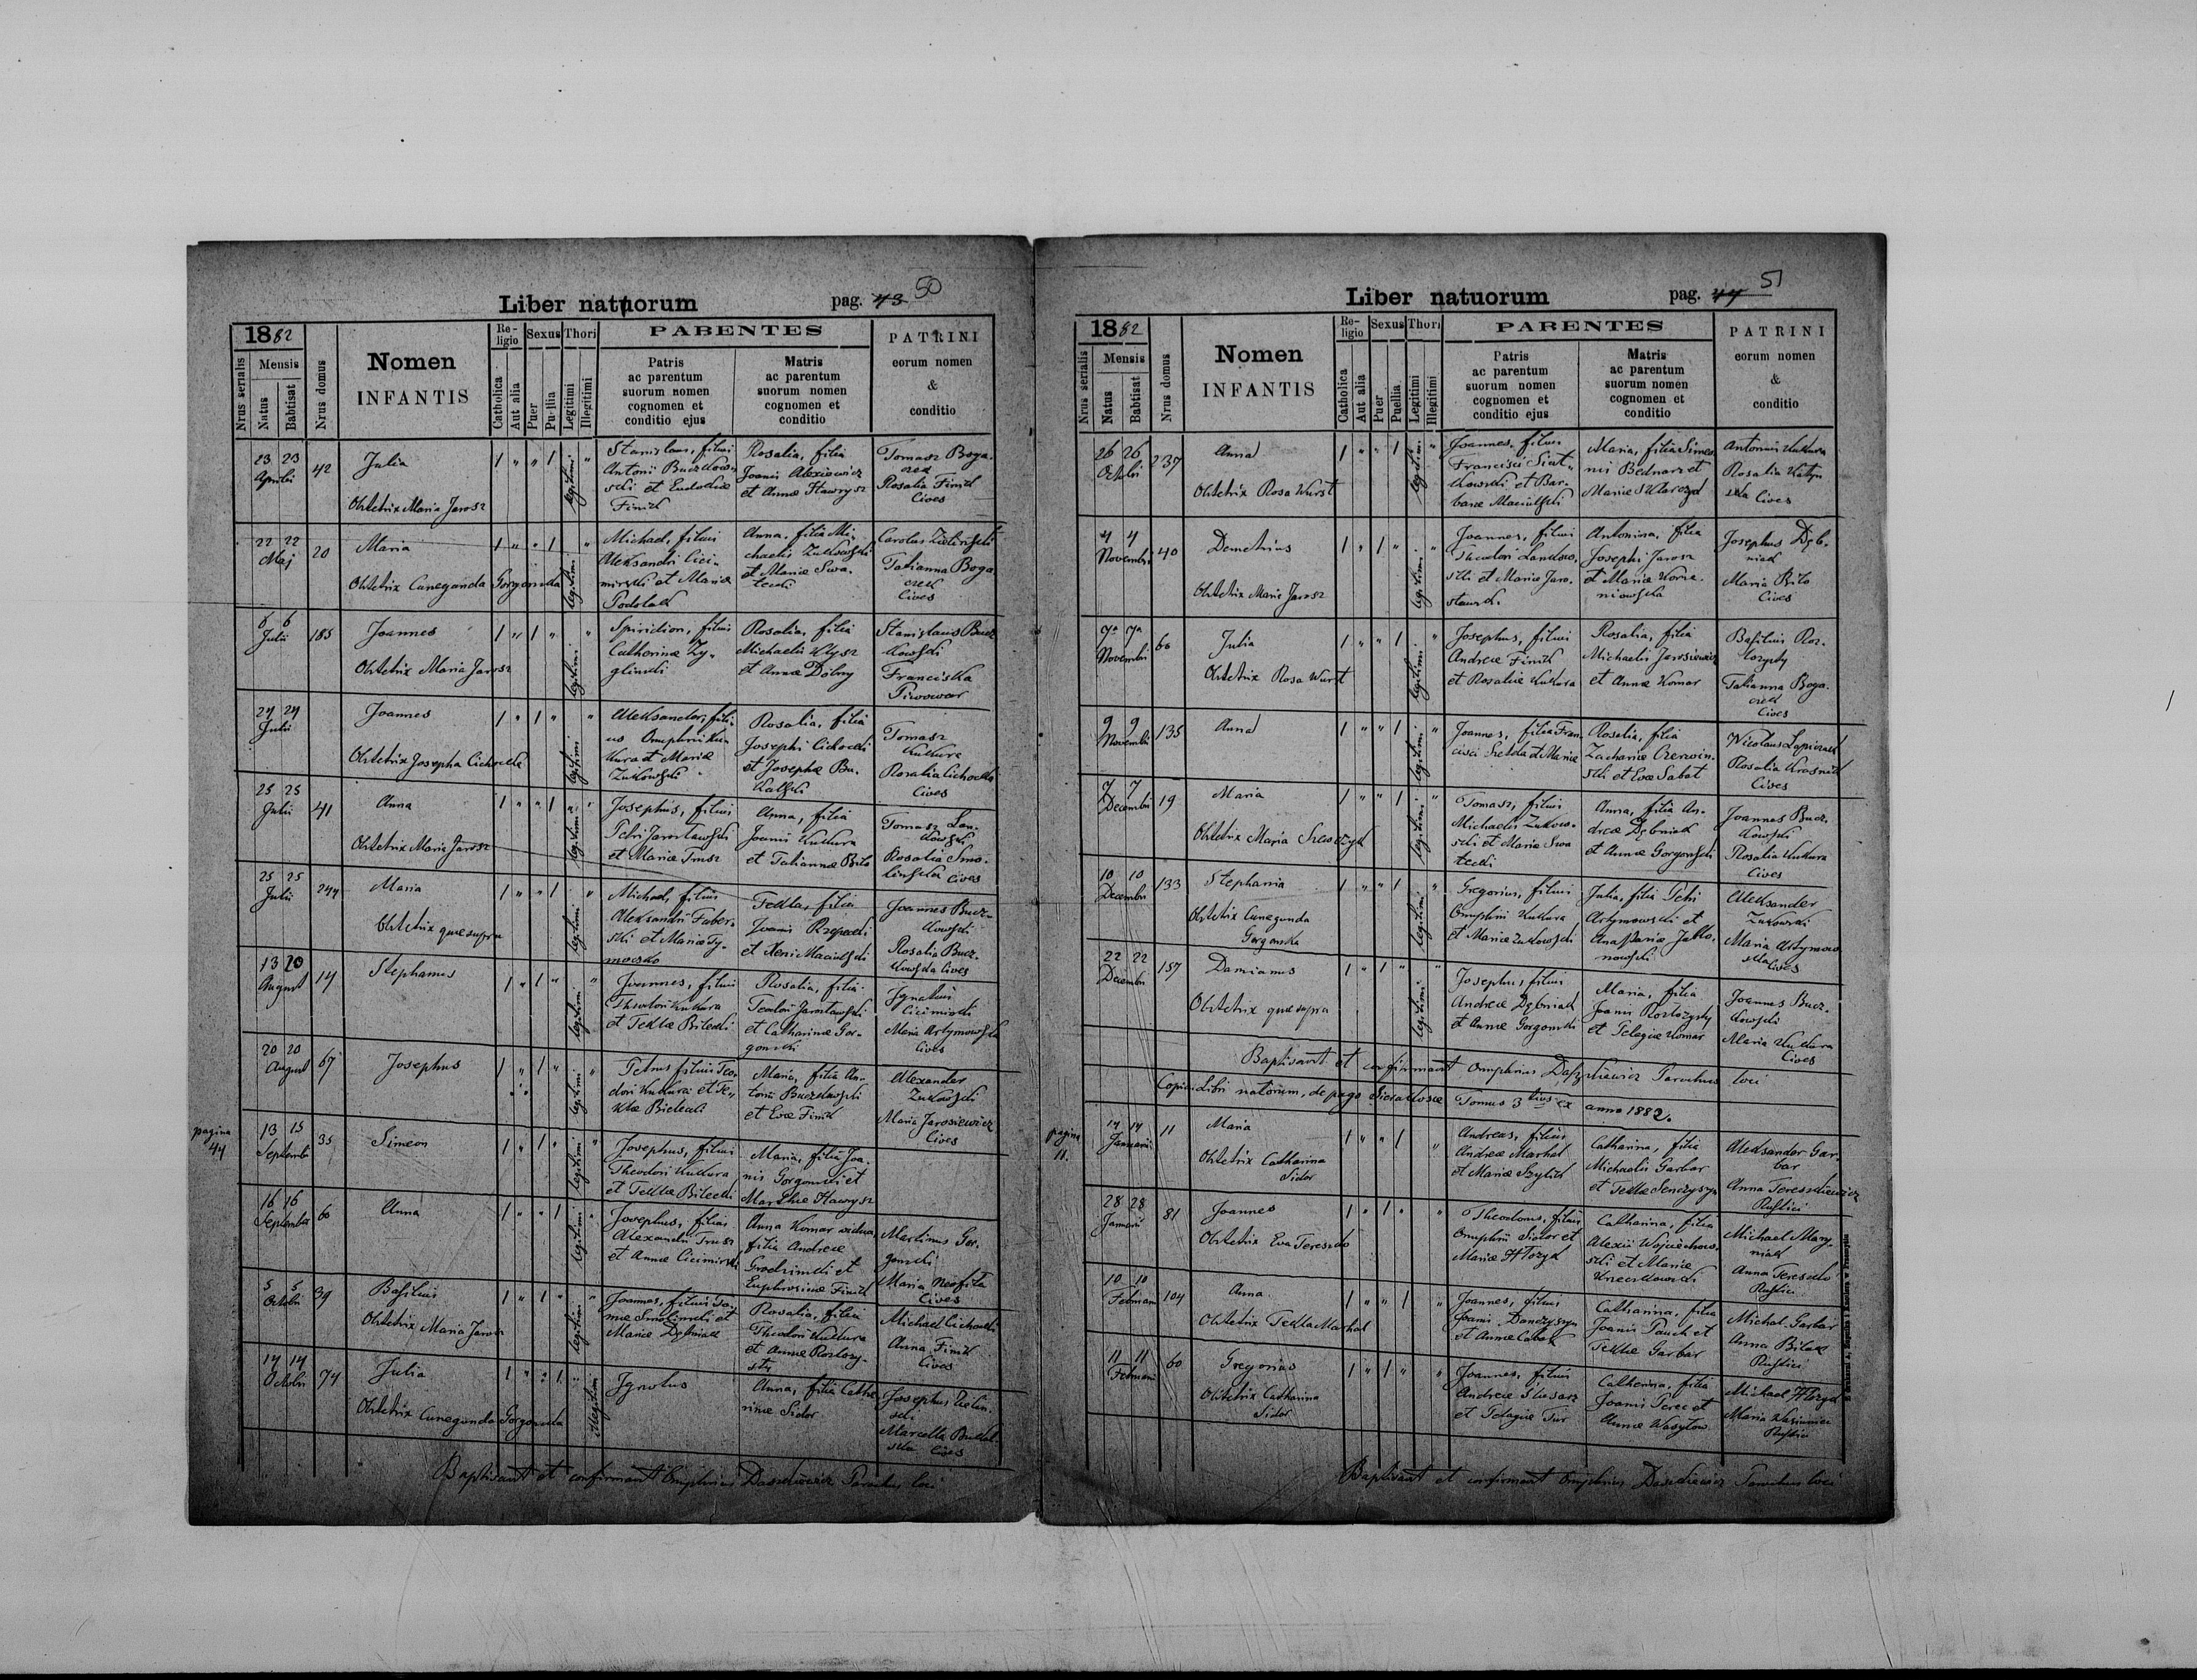 Liber natuorum pag. 43 50
1882
Nrus serialis
Mensis
Natus
Babtisat
Nrus domus
Nomen
INFANTIS
Religio
Catholica
Aut alia
Sexus
Puer
Puella
Thori
Legitimi
Illegitimi
PARENTES
Patris
ac parentum
suorum nomen
cognomen et
conditio ejus
Matris
ac parentum
suorum nomen
cognomen et
conditio
PATRINI
eorum nomen
&
conditio
23 23
Aprilii
42
Julia
Obstetrix Maria Jarosz
legitimi
Stanislaus, filius
Antonii Buczkow-
ski et Eudokiæ
Finik
Rosalia, filia
Joanis Alexiewicz
et Annæ Hawrysz
Tomasz Boga-
czek
Rosalia Finik
Cives
22 22
Maj
20
Maria
Obstetrix Cunegunda Gorgonska
legitimi
Michael, filius
Aleksandri Cici-
mirski et Mariæ
Podolak
Anna, filia Mi-
chaelis Zukowski
et Mariæ Swa-
tecki
Carolus Zielinski
Tatianna Boga
czek
Cives
6 6
Julii
185
Joannes
Obstetrix Maria Jarosz
legitimi
Spiridion, filius
Catharinæ Zy-
glinski
Rosalia, filia
Michaelis Klysz
et Annæ Dobny
Stanislaus Bucz
kowski
Franciska
Piwowar
24 24
Julii
Joannes
Obstetrix Josepha Cichocka
legitimi
Aleksander, fili-
us Omphri Ku-
kura et Mariæ
Zukowski
Rosalia, filia
Josephi Cichocki
et Josephæ Bu-
kalski
Tomasz
Kukura
Rosalia Cichocka
Cives
25 25
Julii
41
Anna
Obstetrix Maria Jarosz
legitimi
Josephus, filius
Petri Jaroslawski
et Mariæ Trusz
Anna, filia
Joanis Kukura
et Tatiannæ Bilo
Tomasz Lan-
kowski
Rosalia Smo-
linska Cives
25 25
Julii
244
Maria
Obstetrix quæ supra
legitimi
Michael, filius
Aleksandri Faber-
ski et Mariæ Ty-
mocsko
Tekla, filia
Joanis Rzepecki
et Xeni Maciulski
Joannes Bucz-
kowski
Rosalia Bucz-
kowska Cives
13 20
August
14
Stephanus
legitimi
Joannes, filius
Theodori Kukura
et Teklæ Bilecki
Rosalia, filia
Teodori Jaroslawski
et Catharinæ Gor-
gonski
Ignatius
Cicimirski
Maria Artymowska
Cives
20 20
August
67
Josephus
legitimi
Petrus filius Teo-
dori Kukura et Te-
klæ Bielecki
Maria, filia An-
tonii Buczkowski
et Evæ Finik
Alexander
Zukowski
Maria Jarosiewicz
Cives
pagina
44
13 15
Septembr
35
Simeon
legitimi
Josephus, filius
Theodori Kukura
et Teklæ Bilecki
Maria, filia Joa-
nis Gorgonski et
Marthæ Hawrysz
16 16
September
60
Anna
legitimi
Josephus, filius
Alexandri Trusz
et Annæ Cicimirski
Anna Komar vidua,
filia Andreæ
Grodzinski et
Euphrosinæ Finik
Martinus Gor-
gonski
Maria Neofita
Cives
5 5
Octobr
39
Basilius
Obstetrix Maria Jarosz
legitimi
Joannes, filius To-
mæ Smolinski et
Mariæ Dębniak
Rosalia, filia
Theodori Kukura
et Annæ Rozlozy-
sty
Michael Cichocki
Anna Finik
Cives
14 14
Octobri
74
Julia
Obstetrix Cunegunda Gorgonska
illegitimi
Ignotus
Anna, filia Catha-
rinæ Sidor
Josephus Zielin-
ski
Marcella Bukal-
ska Cives
Baptisavit et confirmavit Omphrius Daszkiewicz Parochus loci
Liber natuorum pag. 44 51
1882
Nrus serialis
Mensis
Natus
Babtisat
Nrus domus
Nomen
INFANTIS
Religio
Catholica
Aut alia
Sexus
Puer
Puellia
Thori
Legitimi
Illegitimi
PARENTES
Patris
ac parentum
suorum nomen
cognomen et
conditio ejus
Matris
ac parentum
suorum nomen
cognomen et
conditio
PATRINI
eorum nomen
&
conditio
26 26
Octobri
237
Anna
Obstetrix Rosa Wurst
legitimi
Joannes, filius
Francisci Siat-
kowski et Bar-
baræ Maciulski
Maria, filia Simeo-
nis Bednarz et
Mariæ Szklarczyk
Antonius Kukura
Rosalia
Cives
4 4
Novembri
40
Demetrius
Obstetrix Maria Jarosz
legitimi
Joannes, filius
Theodori Lankow-
ski et Mariæ Jaro-
slawski
Antonina, filia
Josephi Jarosz
et Mariæ Korze-
niowska
Josephus Dęb-
niak
Maria Bilo
Cives
7 7
Novembri
66
Julia
Obstetrix Rosa Wurst
legitimi
Josephus, filius
Andreæ Finik
et Rosaliæ Kukura
Rosalia, filia
Michaelis Jarosiewicz
et Annæ Komar
Basilius Roz-
lozysty
Tatianna Boga-
czek
Cives
9 9
Novembri
135
Anna
legitimi
Joannes, filius Fran-
cisci Sretda et Mariæ
Rosalia, filia
Zachariæ Czerwin-
ski et Evæ Sabat
Nicolaus Lapiczak
Rosalia Krasnik
Cives
7 7
Decembri
19
Maria
Obstetrix Maria
legitimi
Tomasz, filius
Michaelis Zukow-
ski et Mariæ Swa
tecki
Anna, filia An-
dreæ Dębniak
et Annæ Gorgonski
Joannes Bucz-
kowski
Rosalia Kukura
Cives
10 10
Decembri
133
Stephania
Obstetrix Cunegunda
Gorgonska
legitimi
Gregorius, filius
Omphri Kukura
et Mariæ Zukowski
Julia, filia Petri
Artymowski et
Anastasiæ Jablo-
nowski
Aleksander
Zukowski
Maria Artymow
ska Cives
22 22
Decembri
157
Damianus
Obstetrix quæ supra
legitimi
Josephus, filius
Andreæ Dębniak
et Annæ Gorgonski
Maria, filia
Joanis Rozlozysty
et Pelagiæ Komar
Joannes Bucz-
kowski
Maria Kukura
Cives
Baptisavit et confirmavit Omphrius Daszkiewicz Parochus loci
Copia Libri natorum, de pago Sieraksca Tomus 3 tius ex anno 1882.
pagina
11.
14 14
Januarii
11
Maria
Obstetrix Catharina
Sidor
Andreas, filius
Andreæ Marhal
et Mariæ Szylik
Catharina, filia
Michaelis Garbar
et Teklæ Senczyszyn
Aleksander Gar-
bar
Anna Tereszkiewicz
Rustici
28 28
Januarii
81
Joannes
Obstetrix Eva Tereszko
Theodorus, filius
Omphrii Sidor et
Mariæ Hlozyk
Catharina, filia
Alexii Wojciechow-
ski et Mariæ
Kreczkowski
Michael Mary-
niak
Anna Tereszko
Rustici
10 10
Februarii
104
Anna
Obstetrix Tekla Marhal
Joannes, filius
Joanis Danczyszyn
et Annæ Cabak
Catharina, filia
Joanis Pauch et
Teklæ Garbar
Michal Garbar
Anna Bilas
Rustici
11 11
Februarii
60
Gregorius
Obstetrix Catharina
Sidor
Joannes, filius
Andreæ Slusarz
et Pelagiæ Tur
Catharina, filia
Joanis Terec et
Annæ Wasylow
Michael Hlozyk
Maria
Rustici
Baptisavit et confirmavit Omphrius Daszkiewicz Parochus loci